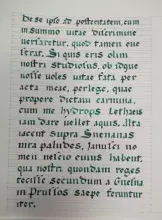 De se ipso ad posteritatem, cum
in summo vitae discrimine
versaretur, quod tamen eva
serat. Si quis eris olim
nostri studiosus, ob idque
nosse voles vitae fata per
acta meae, perlege, quae
propere dictavi carmina,
cum me hydrops Lethaeis
iam dare vellet aquis. Ulta
iacent supra
mira paludes, Januses no
men nescio cuius habent,
qua nostri quondam reges
fecisse secundum a Gnesna
in Prussos saepe feruntur
iter.